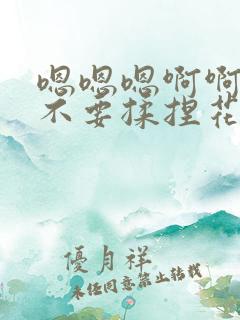 嗯嗯嗯啊啊
不要揉捏花
優月祥
未任同意禁止转载